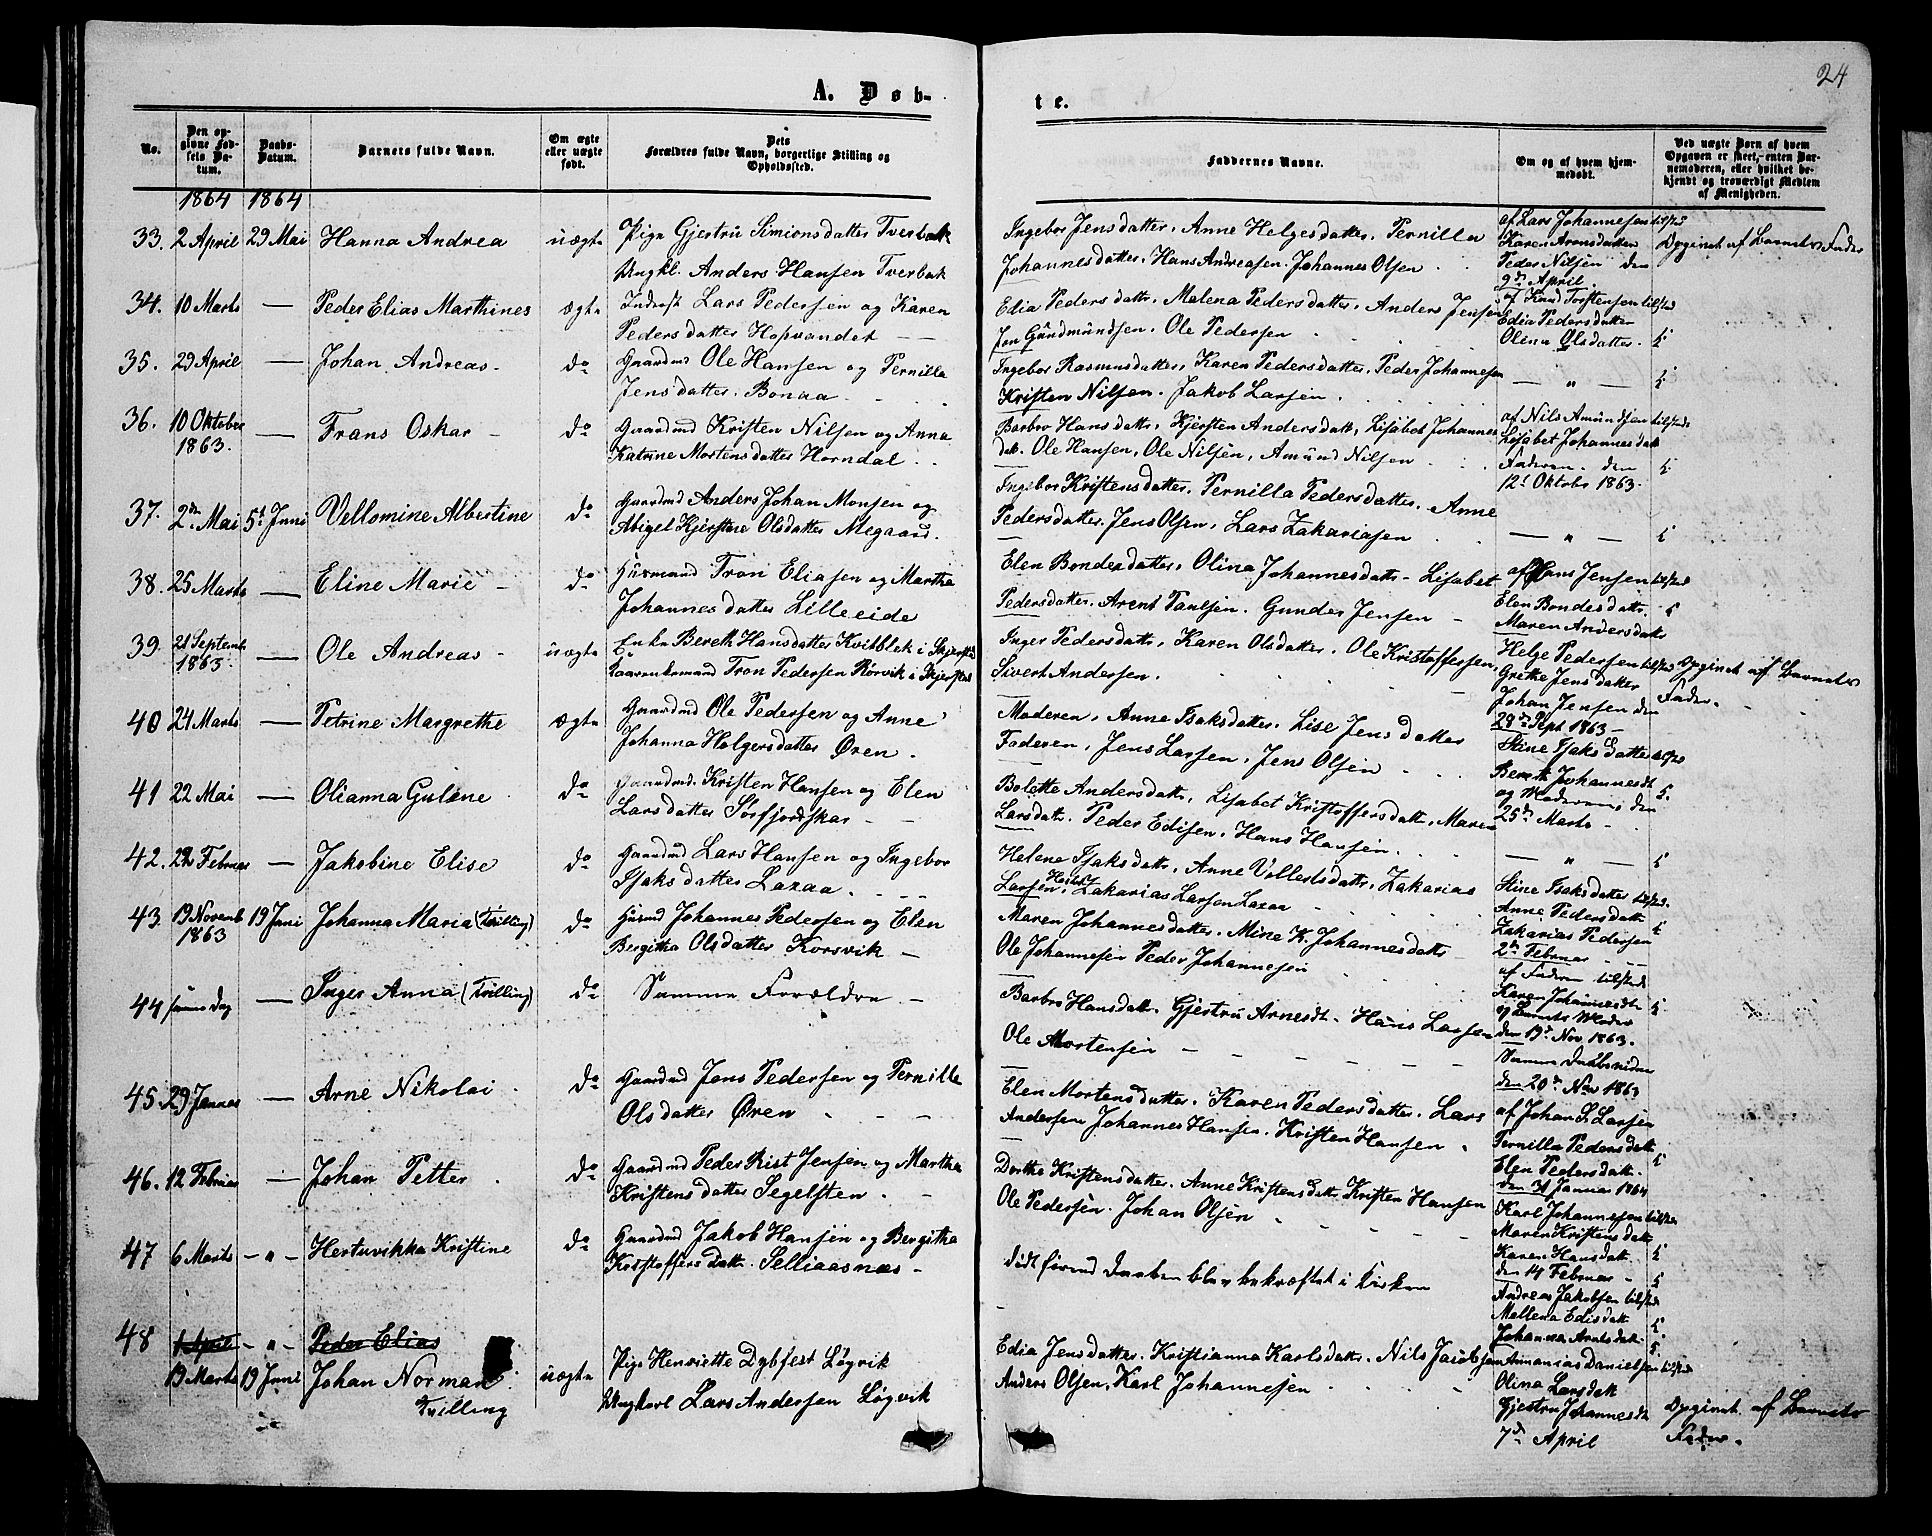 24
A. Døb-
te.
No.
Den op-
givne Fød-
sels Da-
tum.
Daabs-
Datum.
Barnets fulde Navn.
Om ægte
eller uægte
født.
Dets
Forældres fulde Navn, borgerlige Stilling og
Opholdssted.
Faddernes Navne.
Om og af hvem hjem-
medøbt.
Ved uægte Børn af hvem
Opgaven er skeet, enten Bar-
nemoderen, eller hvilket be-
kjendt og troværdigt Medlem
af Menigheden.
1864 1864
33. 2 April 29 Mai Hanna Andrea uægte Pige Gjestru Simionsdatter Tverbak
Ungkl. Anders Hansen Tverbak
Ingebor Jensdatter, Anne Helgesdatter, Pernilla
Johannesdatter, Hans Andreasen, Johannes Olsen
af Lars Johannesen tilsted
Karen Aronsdatter
Peder Nilsen den
9de April.
Opgivet af Barnets Fader
34. 10 Marts — Peder Elias Marthines ægte Inderst Lars Pedersen og Karen
Pedersdatter Hopvandet
Edia Pedersdatter, Malena Pedersdatter, Anders Jensen
Jon Gundmundsen, Ole Pedersen
af Knud Torstensen tilsted
Edia Pedersdatter
Olena Olsdatter.
35. 29 April — Johan Andreas do Gaardmd Ole Hansen og Pernilla
Jensdatter Bonaa
Ingebor Rasmusdatter, Karen Pedersdatter, Peder Johannesen
Kristen Nilsen, Jakob Larsen
— " —
36. 10 Oktober
1863. — Frans Oskar do Gaardmd Kristen Nilsen og Anna
Katrine Mortensdatter Horndal
Barbro Hansdatter, Kjersten Andersdatt, Lisabet Johannes
datt. Ole Hansen, Ole Nilsen, Amund Nilsen
af Nils Amundsen tilsted
Lisabet Johannesdatt
Faderen. den
12te Oktober 1863.
37. 2den Mai 5te Juni Vellomine Albertine do Gaardmd Anders Johan Monsen og
Abigel Kjerstine Olsdatter Megaard.
Ingebor Kristensdatter, Pernilla Pedersdatter, Anne
Pedersdatter, Jens Olsen, Lars Zakariasen
— " —
38. 25 Marts — Eline Marie do Husmand Tron Eliasen og Martha
Johannesdatter Lilleeide
Elen Bondesdatter, Olina Johannesdatt- Lisabet
Pedersdatter, Arent Paulsen, Gunder Jensen
af Hans Jensen tilsted
Elen Bondesdatt
Maren Andersdatt
39. 21 Septemb
1863. — Ole Andreas uægte Enke Bereth Hansdatter Kvitblek i Skjerstad
Gaardmand Tron Pedersen Rørvik i Skjerstad
Inger Pedersdatter, Karen Olsdatter, Ole Kristoffersen,
Sivert Andersen.
Helge Pedersen tilsted
Grethe Jensdatter
Johan Jensen den
28de Sept 1863.
Opgivet af Barnets
Fader.
40 24 Marts — Petrine Margrethe ægte Gaardmd Ole Pedersen og Anne
Johanna Holgersdatter Øren
Moderen, Anne Isaksdatter, Lise Jensdatter
Faderen, Jens Larsen, Jens Olsen
Stine Isaksdatter
Bereth Johannesdt
og Moderen den
25de Marts
41 22 Mai — Olianna Guline do Gaardmd. Kristen Hansen og Elen
Larsdatter Sørfjordskar
Bolette Andersdatt, Lisabet Kristoffersdatt, Maren
Larsdatt. Peder Edisen, Hans Hansen.
— " —
42. 22 Februar — Jakobine Elise do Gaardmd Lars Hansen og Ingebor
Isaksdatter Laxaa.
Helene Isaksdatt, Anne Vollertsdatter, Zakarias
Larsen, Zakarias Larsen Laxaa
Stine Isaksdatter tilsted.
Anne Pedersdatt
Zakarias Pedersen
2den Februar
43. 19 Novemb
1863 19 Juni Johanna Maria (Tvilling) do Husmd Johannes Pedersen og Elen
Bergitha Olsdatter Korsvik
Maren Johannesdatter, Mine K. Johannesdatt
Ole Johannesen Peder Johannesen
af Faderen tilsted
Karen Johannesdt
og Barnets Moder
den 19de Nov 1863.
44 samme Dag — Inger Anna (Tvilling) do Samme Forældre
Barbro Hansdatt. Gjestru Arnesdt. Hans Larsen
Ole Mortensen
Samme Daabsvidner
den 20de Nov 1863
45. 29 Januar — Arne Nikolai do Gaardmd Jens Pedersen og Pernille
Olsdatter Øren
Elen Mortensdatter, Karen Pedersdatter, Lars
Andersen Johannes Hansen, Kristen Hansen
af Johan L. Larsen
Pernilla Pedersdatt
Elen Pedersdatt
den 31 Januar 1864
46. 12 Februar — Johan Petter do Gaardmd Peder Rist Jensen og Martha
Kristensdatter Segelsten
Dorthe Kristensdatter, Anne Kristensdatt, Kristen Hansen
Ole Pedersen, Johan Olsen
Karl Johannesen tilsted
Maren Kristensdatt
Karen Hansdatt
den 14 Februar
47 6 Marts — " — Hertuvikka Kristine do Gaardmd Jakob Hansen og Bergitha
Kristoffersdatt. Selliaasnæs
Død forend Daaben blev bekræftet i Kirken
Andreas Jakobsen tilsted
Mallena Edisdatt
Johanna Arntsdatt
48 1 April — " — Peder Elias
19 Marts 19 Juni Johan Norman
Tvilling
uægte Pige Henriette Dybfest Løgvik
Ungkarl Lars Andersen Løgvik
Edia Jensdatter, Kristianna Karlsdatter, Nils Jacobsen
Anders Olsen, Karl Johannesen
Annanias Danielsen tilsted
Olina Larsdatt
Gjestru Johannesdt
7de April
Opgivet af Barnets
Fader.